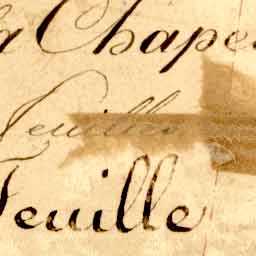 la Chape
Feuilles
Feuille